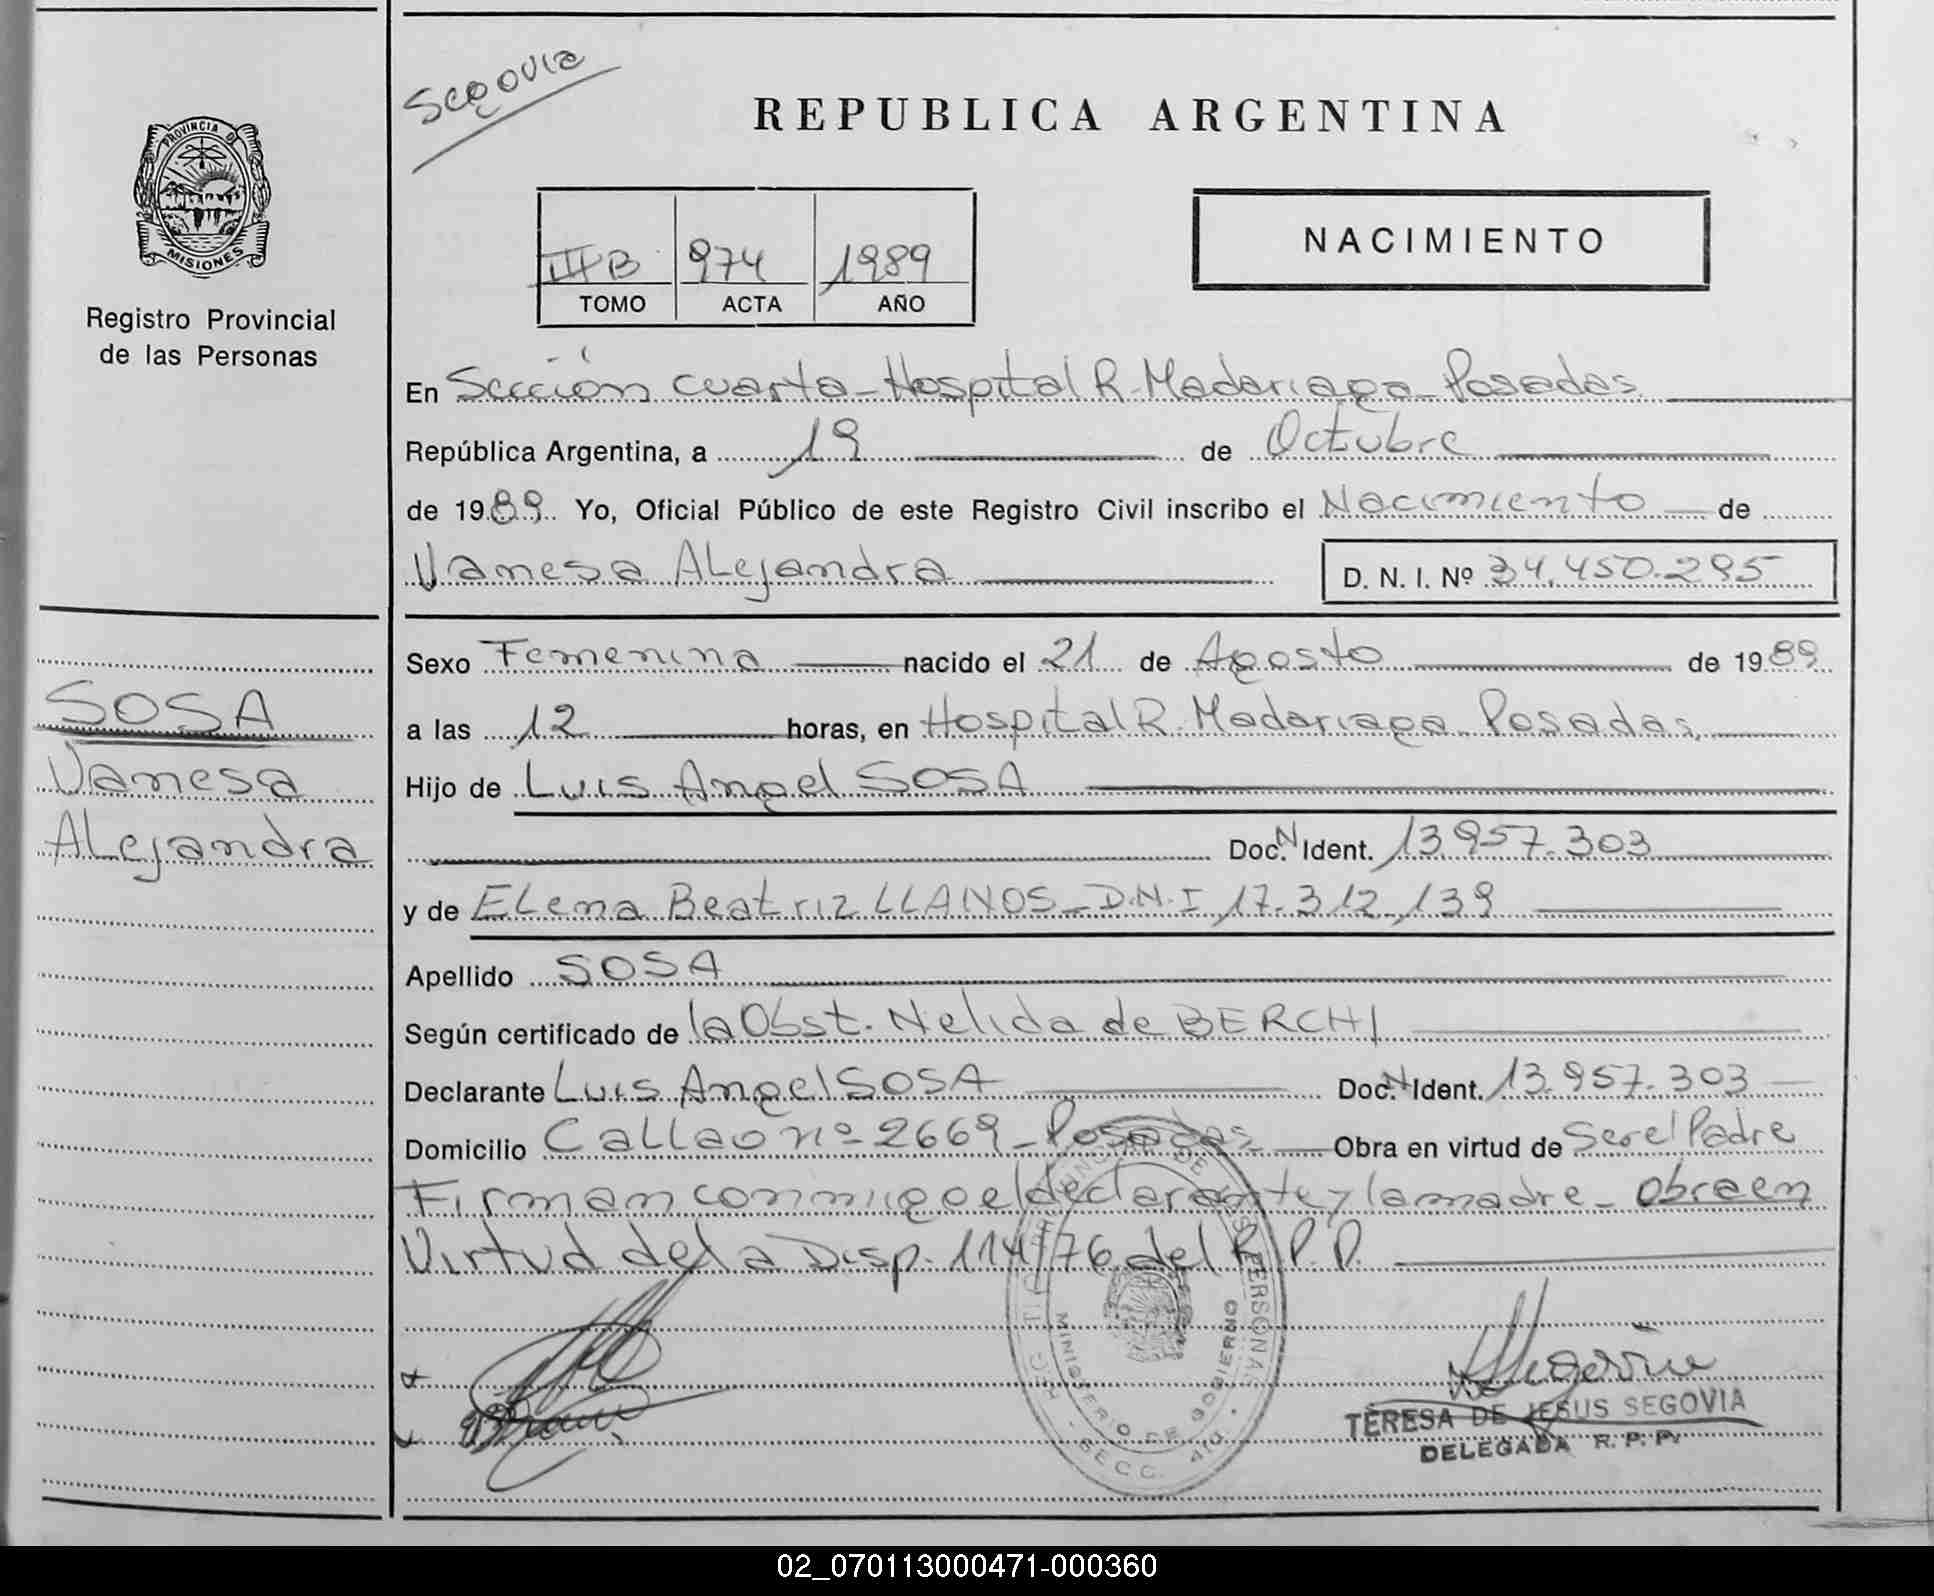 Segovia
REPUBLICA ARGENTINA
PROVINCIA DE
MISIONES
Registro Provincial
de las Personas
III B 974 1989
TOMO ACTA AÑO
NACIMIENTO
En Sección cuarta - Hospital R. Madariaga - Posadas
República Argentina, a 19 de Octubre
de 1989 Yo, Oficial Público de este Registro Civil inscribo el Nacimiento de
Vanesa ALejandra D. N. I. Nº 34.450.295
Sexo Femenina nacido el 21 de Agosto de 1989
a las 12 horas, en Hospital R. Madariaga - Posadas
Hijo de Luis Angel SOSA
Doc. N Ident. 13.957.303
y de ELena Beatriz LLANOS - D.N.I 17.312.139
Apellido SOSA
Según certificado de la Obst. Nelida de BERCHI
Declarante Luis Angel SOSA Doc. N Ident. 13.957.303
Domicilio CaLLao nº 2669 - Posadas Obra en virtud de Ser el Padre
Firman conmigo el declarante y la madre - obra en
Virtud de la Disp. 114/76 del R.P.P.
SOSA
Vanesa
ALejandra
MINISTERIO DE GOBIERNO
SECC. 4TA.
Segovia
TERESA DE JESUS SEGOVIA
DELEGADA R. P. P.
02_070113000471-000360